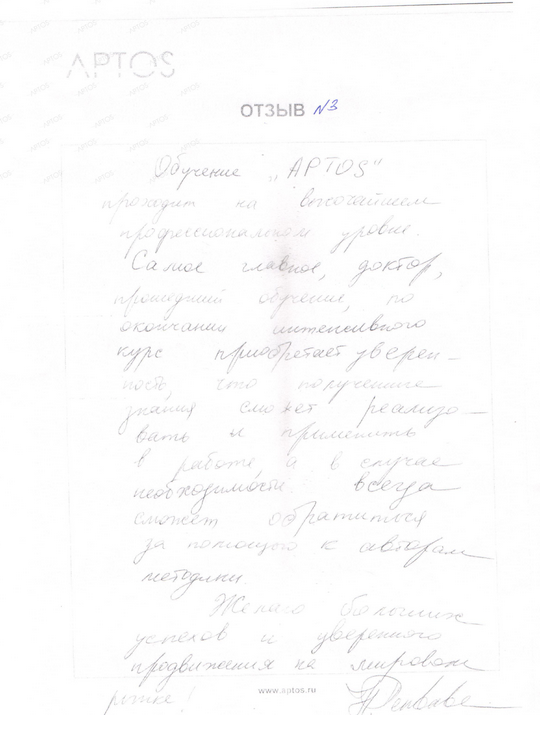 APTOS
ОТЗЫВ N3
Обучение „APTOS"
проходит на высочайшем
профессиональном уровне.
Самое главное, доктор,
прошедший обучение, по
окончании интенсивного
курс приобретает уверен-
ность, что полученные
знания сможет реализо-
вать и применить
в работе, а в случае
необходимости всегда
сможет обратиться
за помощью к авторам
методики
Желаю больших
успехов и уверенного
продвижения на мировом
рынке!
www.aptos.ru